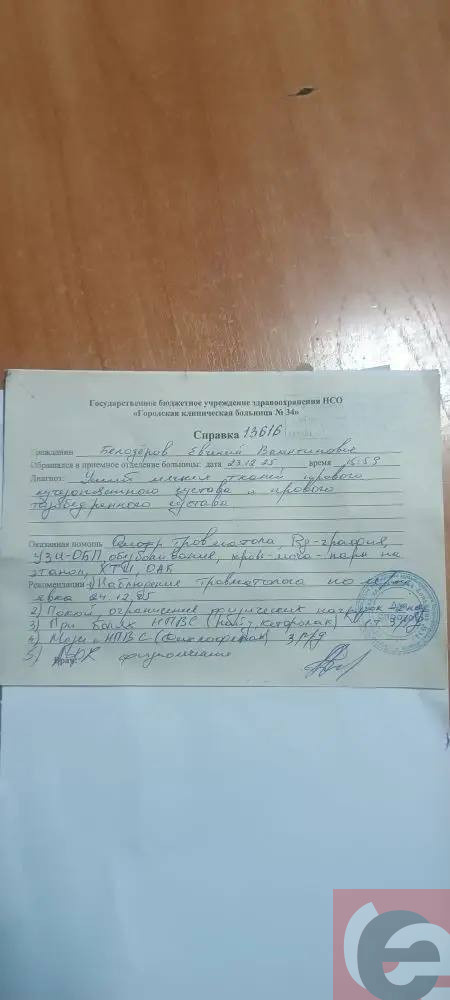 Государственное бюджетное учреждение здравоохранения НСО
«Городская клиническая больница № 34»
Справка 13616
Гражданин Белозёров Евгений Валентинович
Обращался в приемное отделение больницы: дата 23.12.25, время 15:59
Диагноз: Ушиб мягких тканей правого
сустава и правого
тазобедренного сустава
Оказанная помощь Осмотр травматолога, Rg-графия,
УЗИ-ОБП, обезболивание, кровь, моча - пары на
этанол, ХТИ, ОАК
Рекомендации 1) Наблюдение травматолога по
явка 24.12.25
2) Покой, ограничение физических нагрузок
3) При болях НПВС (
4) Мази с НПВС (Диклофенак) 3 р/д
5) ЛФК физиолечение
Врач: